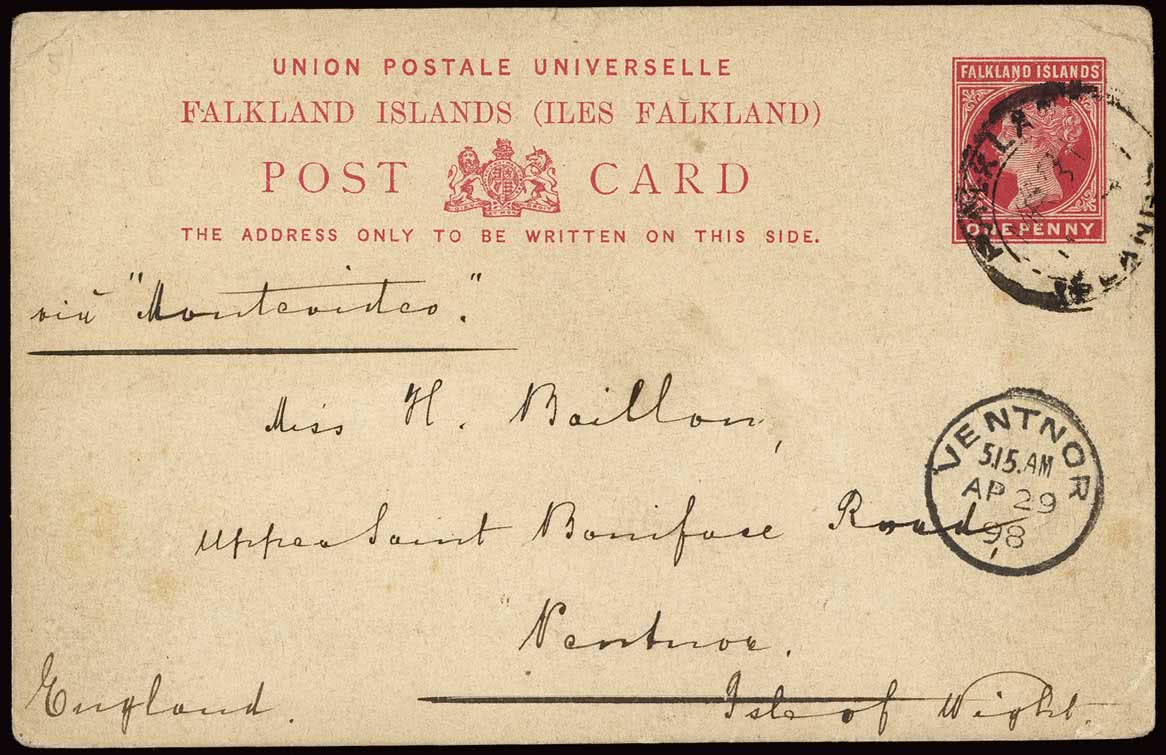 UNION POSTALE UNIVERSELLE
FALKLAND ISLANDS (ILES FALKLAND)
POST CARD
THE ADDRESS ONLY TO BE WRITTEN ON THIS SIDE.
FALKLAND ISLANDS
ONE PENNY
via "Montevideo."
Miss H. Baillon,
Upper Saint Boniface Road,
VENTNOR
5.15.AM
AP 29
98
"Ventnor.
Isle of Wight.
England.